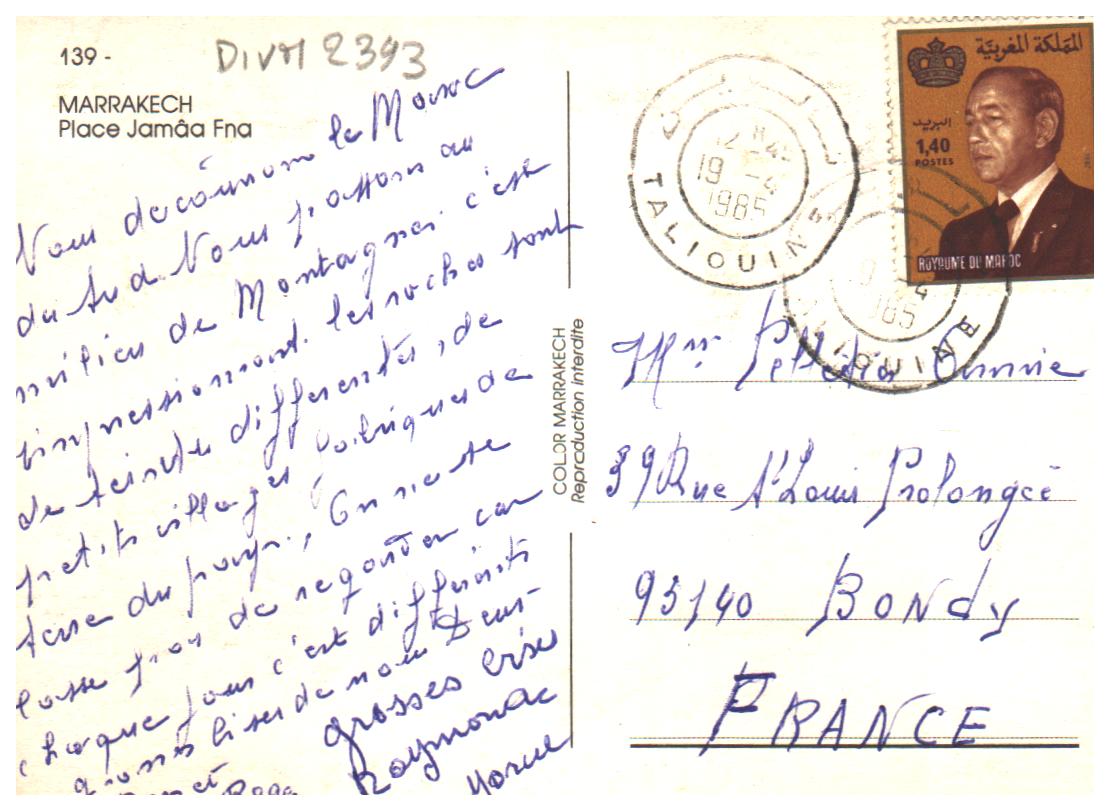 139 -
DIVM 2393
MARRAKECH
Place Jamâa Fna
Nous découvrons le Maroc
du Sud Nous passons au
milieu de Montagnes c'est
impressionnant. les roches sont
de teintes différentes, de
petits villages fabriqués de
terre du pays., On reste
lasse pas de regarder car
chaque jour c'est différents
grosses bises de nous Deux
grosses bises
Raymonde
COLOR MARRAKECH
Reproduction interdite
TALIOUINE
12 H 45
19 -4
1985
TALIOUINE
19 -4
1985
المملكة المغربية
البريد
1,40
POSTES
ROYAUME DU MAROC
Mme Annie
39 Rue St Louis Prolongée
93140 BONdy
FRANCE